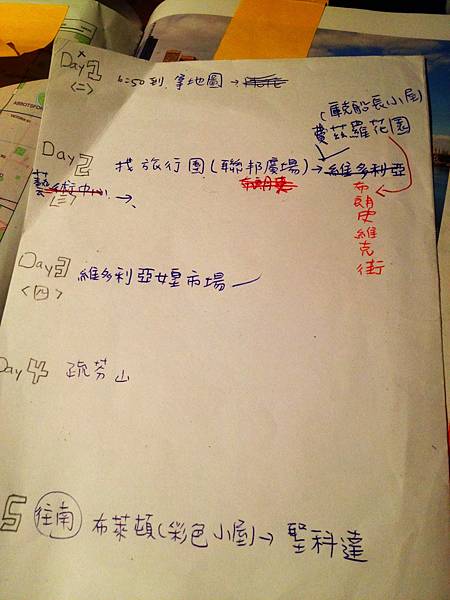 Day 1 6:50到, 拿地圖→
<二>
(庫克船長小屋)
費茲羅花園
Day 2 找旅行團(聯邦廣場)→維多利亞
藝術中心→
<三>
布朗史維克街
Day 3 維多利亞女皇市場
<四>
Day 4 疏芬山
5 往南 布萊頓(彩色小屋)→聖科達